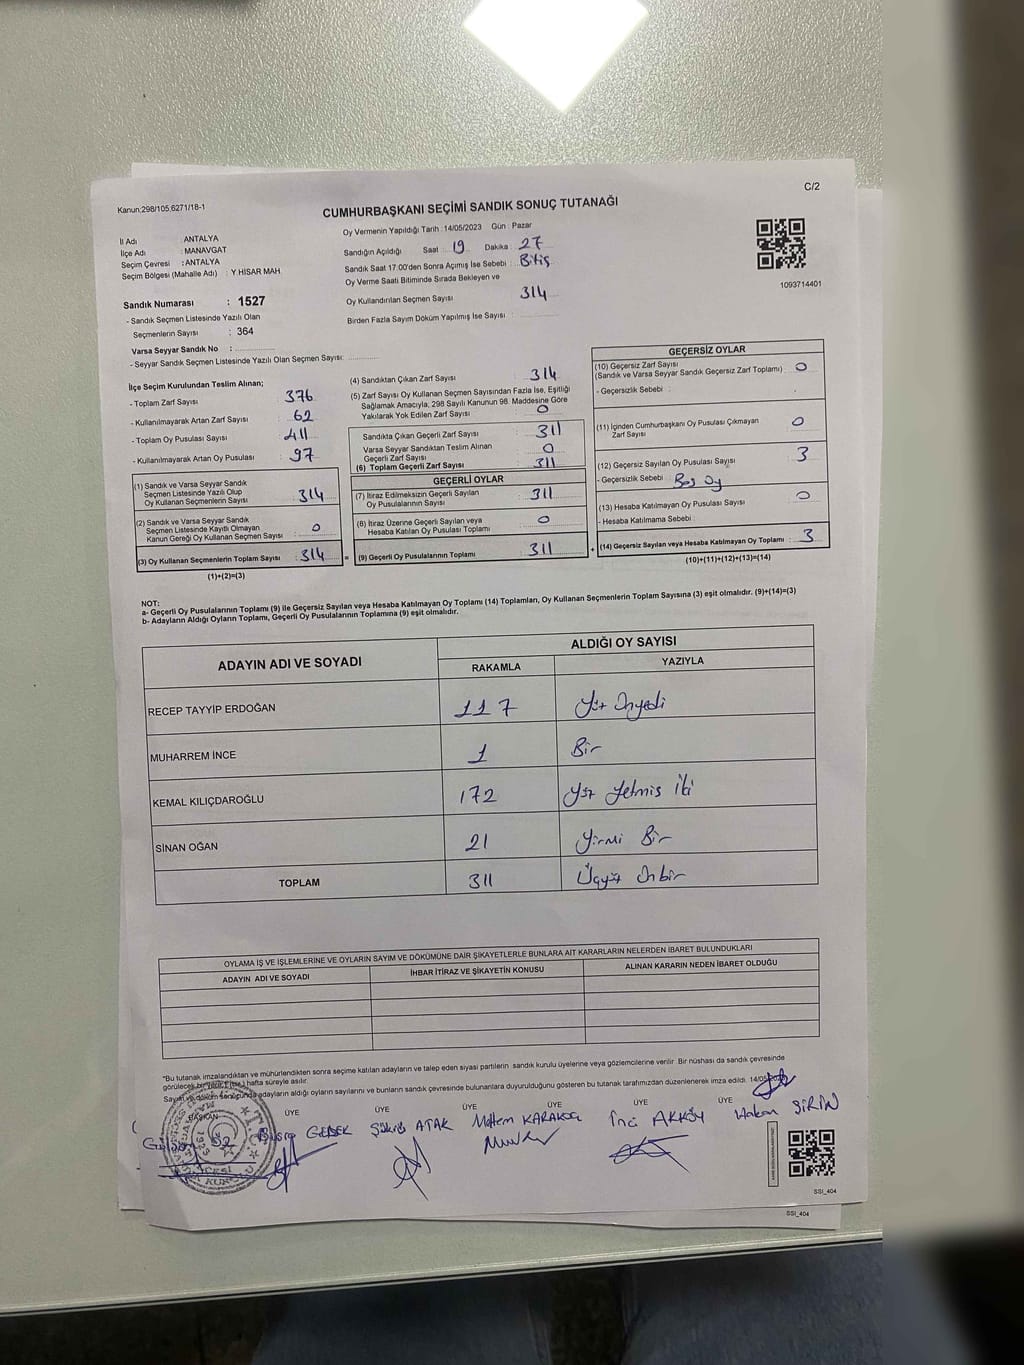 C/2
Kanun:298/105.6271/18-1
CUMHURBAŞKANI SEÇİMİ SANDIK SONUÇ TUTANAĞI
İl Adı : ANTALYA
İlçe Adı : MANAVGAT
Seçim Çevresi : ANTALYA
Seçim Bölgesi (Mahalle Adı) : Y.HİSAR MAH
Oy Vermenin Yapıldığı Tarih : 14/05/2023 Gün : Pazar
Sandığın Açıldığı Saat 19 Dakika : 27
Sandık Saat 17:00'den Sonra Açımış İse Sebebi : Bitiş
Oy Verme Saati Bitiminde Sırada Bekleyen ve
Oy Kullandırılan Seçmen Sayısı : 314
Birden Fazla Sayım Döküm Yapılmış İse Sayısı :
1093714401
Sandık Numarası : 1527
- Sandık Seçmen Listesinde Yazılı Olan
Seçmenlerin Sayısı : 364
Varsa Seyyar Sandık No :
- Seyyar Sandık Seçmen Listesinde Yazılı Olan Seçmen Sayısı:
İlçe Seçim Kurulundan Teslim Alınan;
- Toplam Zarf Sayısı : 376
- Kullanılmayarak Artan Zarf Sayısı : 62
- Toplam Oy Pusulası Sayısı : 411
- Kullanılmayarak Artan Oy Pusulası : 97
(1) Sandık ve Varsa Seyyar Sandık
Seçmen Listesinde Yazılı Olup
Oy Kullanan Seçmenlerin Sayısı : 314
(2) Sandık ve Varsa Seyyar Sandık
Seçmen Listesinde Kayıtlı Olmayan
Kanun Gereği Oy Kullanan Seçmen Sayısı : 0
(3) Oy Kullanan Seçmenlerin Toplam Sayısı : 314
(1)+(2)=(3)
(4) Sandıktan Çıkan Zarf Sayısı : 314
(5) Zarf Sayısı Oy Kullanan Seçmen Sayısından Fazla İse, Eşitliği
Sağlamak Amacıyla, 298 Sayılı Kanunun 98. Maddesine Göre
Yakılarak Yok Edilen Zarf Sayısı : 0
Sandıkta Çıkan Geçerli Zarf Sayısı : 311
Varsa Seyyar Sandıktan Teslim Alınan
Geçerli Zarf Sayısı : 0
(6) Toplam Geçerli Zarf Sayısı : 311
GEÇERLİ OYLAR
(7) İtiraz Edilmeksizin Geçerli Sayılan
Oy Pusulalarının Sayısı : 311
(8) İtiraz Üzerine Geçerli Sayılan veya
Hesaba Katılan Oy Pusulası Toplamı : 0
= (9) Geçerli Oy Pusulalarının Toplamı : 311
GEÇERSİZ OYLAR
(10) Geçersiz Zarf Sayısı
(Sandık ve Varsa Seyyar Sandık Geçersiz Zarf Toplamı) : 0
- Geçersizlik Sebebi :
(11) İçinden Cumhurbaşkanı Oy Pusulası Çıkmayan
Zarf Sayısı : 0
(12) Geçersiz Sayılan Oy Pusulası Sayısı : 3
- Geçersizlik Sebebi : Boş Oy
(13) Hesaba Katılmayan Oy Pusulası Sayısı : 0
- Hesaba Katılmama Sebebi :
+ (14) Geçersiz Sayılan veya Hesaba Katılmayan Oy Toplamı : 3
(10)+(11)+(12)+(13)=(14)
NOT:
a- Geçerli Oy Pusulalarının Toplamı (9) ile Geçersiz Sayılan veya Hesaba Katılmayan Oy Toplamı (14) Toplamları, Oy Kullanan Seçmenlerin Toplam Sayısına (3) eşit olmalıdır. (9)+(14)=(3)
b- Adayların Aldığı Oyların Toplamı, Geçerli Oy Pusulalarının Toplamına (9) eşit olmalıdır.
ADAYIN ADI VE SOYADI ALDIĞI OY SAYISI
RAKAMLA YAZIYLA
RECEP TAYYİP ERDOĞAN 117 Yüz Onyedi
MUHARREM İNCE 1 Bir
KEMAL KILIÇDAROĞLU 172 Yüz Yetmiş İki
SİNAN OĞAN 21 Yirmi Bir
TOPLAM 311 Üçyüz Onbir
OYLAMA İŞ VE İŞLEMLERİNE VE OYLARIN SAYIM VE DÖKÜMÜNE DAİR ŞİKAYETLERLE BUNLARA AİT KARARLARIN NELERDEN İBARET BULUNDUKLARI
ADAYIN ADI VE SOYADI İHBAR İTİRAZ VE ŞİKAYETİN KONUSU ALINAN KARARIN NEDEN İBARET OLDUĞU
*Bu tutanak imzalandıktan ve mühürlendikten sonra seçime katılan adayların ve talep eden siyasi partilerin sandık kurulu üyelerine veya gözlemcilerine verilir. Bir nüshası da sandık çevresinde
görülecek bir yere 1 (bir) hafta süreyle asılır.
Sayım ve döküm sonucunda adayların aldığı oyların sayılarını ve bunların sandık çevresinde bulunanlara duyurulduğunu gösteren bu tutanak tarafımızdan düzenlenerek imza edildi. 14/05/2023
BAŞKAN ÜYE ÜYE ÜYE ÜYE ÜYE
Büşra GEDEK Şükrü ATAK Meltem KARAKOÇ İnci AKKÖY Hakan ŞİRİN
SSI_404
SSI_404